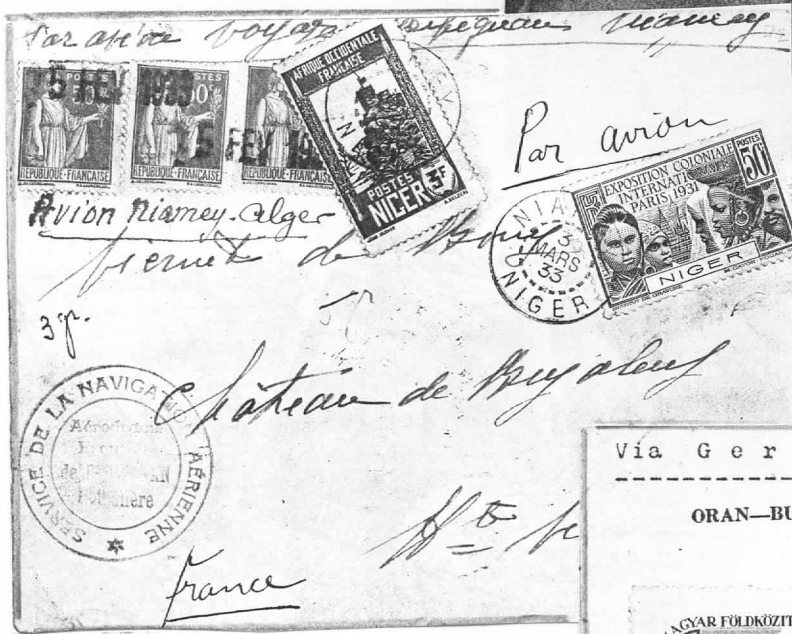 Par avion voyage Perpignan Niamey
POSTES
50c
RÉPUBLIQUE-FRANÇAISE
POSTES
RÉPUBLIQUE-FRANÇAISE
RÉPUBLIQUE-FRANÇAISE
FEV
AFRIQUE OCCIDENTALE
FRANÇAISE
POSTES
NIGER
3F
Par avion
EXPOSITION COLONIALE
INTERNATIONALE
PARIS 1931
POSTES
50c
NIGER
3
MARS
33
NIGER
Avion Niamey-Alger
de
3 gr.
Château de Bujaleuf
SERVICE DE LA NAVIGATION AÉRIENNE
Hte
France
Via Ger
ORAN—BU
MAGYAR FÖLDKÖZIT